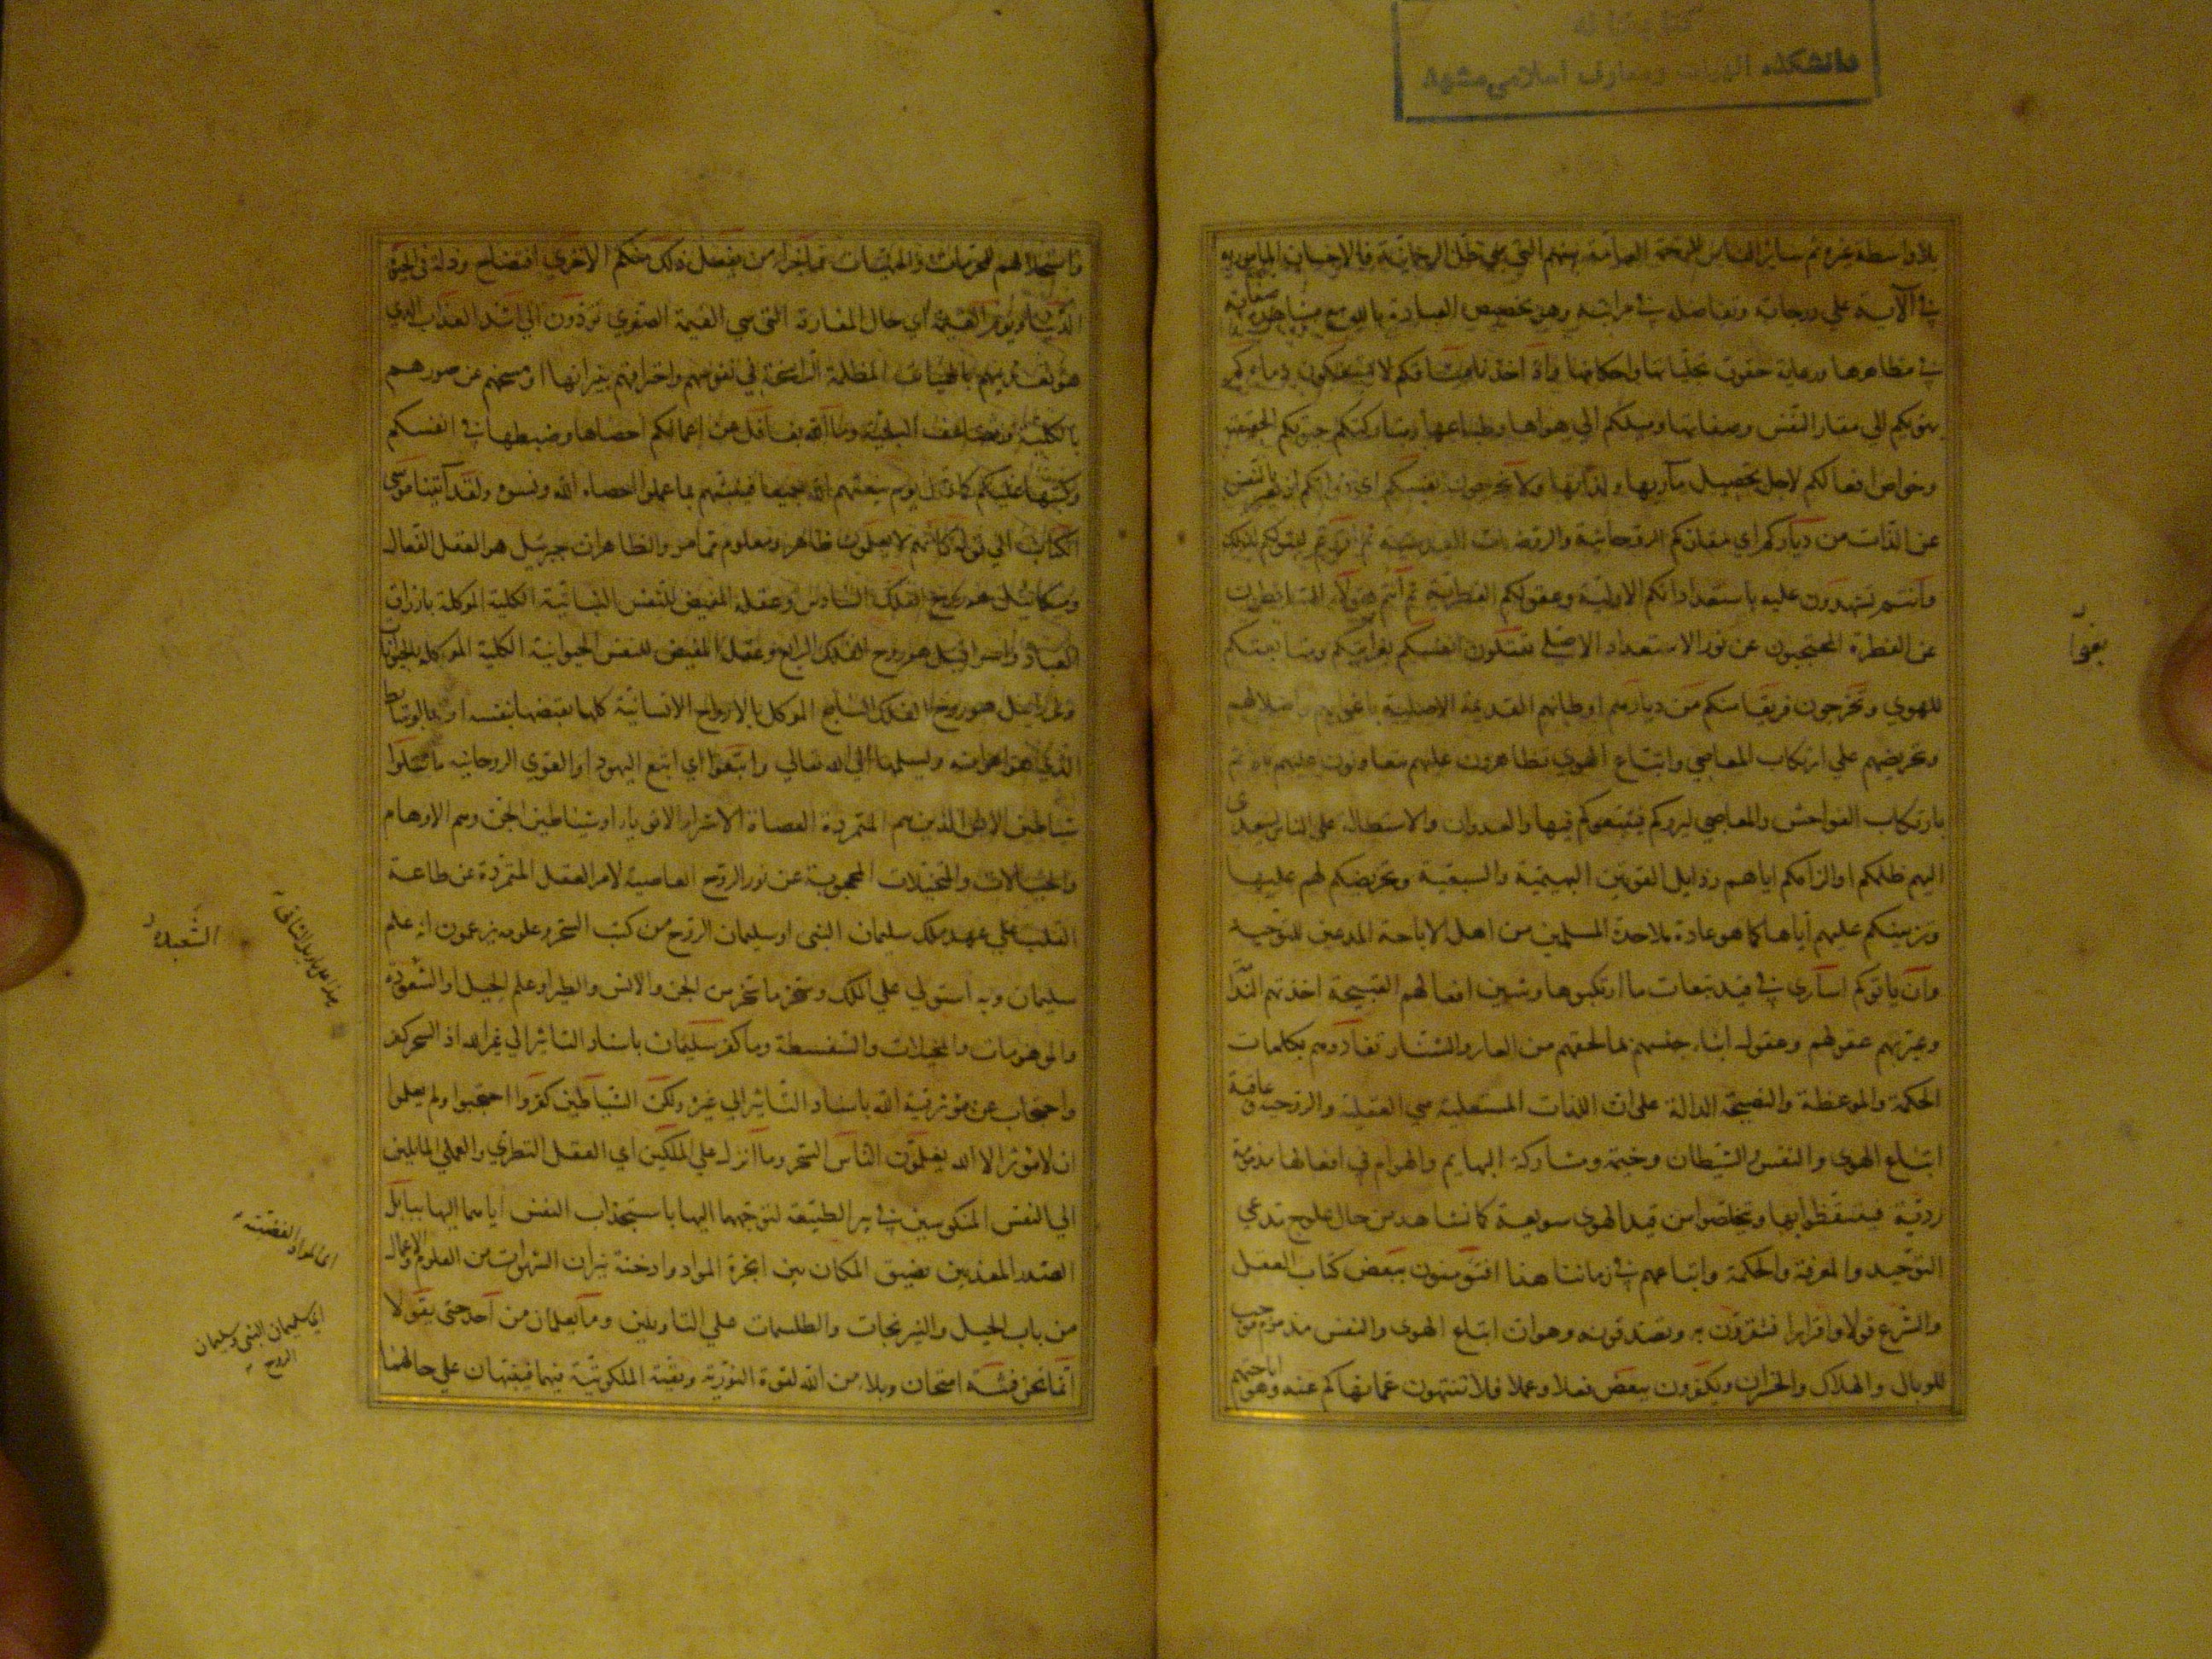 دانشكده الهيات ومعارف اسلامى مشهد
بلا واسطة غيره ثم سائر الناس للرحمة العامة بينهم التى هى ظل الرحمانية فالاحسان المامور به
فى الآية على درجاته وتفاضله فى مراتبه وهو تخصيص العبادة بالله مع مشاهدة صفاته
فى مظاهرها ورعاية حقوق تجلياتها واحكامها واذ اخذنا ميثاقكم لا تسفكون دماءكم
بهويكم الى مقار النفس وصفاتها وميلكم الى هواها وطباعها ومتارككم حيوتكم الحقيقية
وخواص افعالكم لاجل تحصيل مآربها ولذاتها ولا تخرجون انفسكم اى ذواتكم اذ يعبر بالنفس
عن الذات من دياركم اى مقاركم الروحانية والروضات القدسية ثم اقررتم بقبولكم لذلك
وانتم تشهدون عليه باستعداداتكم الاولية وعقولكم الفطرية ثم انتم هؤلاء الساقطون
عن الفطرة المحتجبون عن نور الاستعداد الاصلى تقتلون انفسكم بغوايتكم ومتابعتكم
للهوى وتخرجون فريقا منكم من ديارهم اوطانهم القديمة الاصلية باغوائهم واضلالهم
وتحريضهم على ارتكاب المعاصى واتباع الهوى تظاهرون عليهم تتعاونون عليهم بالاثم
بارتكاب الفواحش والمعاصى ليروكم فيتبعوكم فيها والعدوان والاستطالة على الناس ليتعدى
اليهم ظلمكم او الزامكم اياهم رذايل القوتين البهيمية والسبعية وتحريضكم لهم عليها
وتزيينكم عليهم اياها كما هو عادة ملاحدة المسلمين من اهل الاباحة المدعين للتوحيد
وان ياتوكم اسارى فى قيد تبعات ما ارتكبوها وشين افعالهم القبيحة اخذتهم الندامة
وعيرتهم عقولهم وعقول ابناء جنسهم بما لحقهم من العار والشنار تفادوهم بكلمات
الحكمة والموعظة والنصيحة الدالة على ان اللذات المستعلية هى العقلية والروحية وعاقبة
اتباع الهوى والنفس والشيطان وخيمة ومشاركة البهايم والهوام فى افعالها مذمومة
ردية فيتيقظوا بها ويتخلصوا من قيد الهوى سويعة كما نشاهد من حال علوج مدعى
التوحيد والمعرفة والحكمة واتباعهم فى زماننا هذا افتؤمنون ببعض كتاب العقل
والشرع قولا واقرارا فتقرون به وتصدقونه وهو ان اتباع الهوى والنفس مذموم موجب
للوبال والهلاك والخسران وتكفرون ببعض فعلا وعملا فلا تنتهون عما نهاكم عنه وهو اباحتهم
يغيرا
واستحلالهم للحرمات والمنهيات فما جزاء من يفعل ذلك منكم الا خزى افتضاح وذلة فى الحيوة
الدنيا ويوم القيمة اى حال المفارقة التى هى القيمة الصغرى تردون الى اشد العذاب الذى
هو تعذيبهم بالهيئات المظلمة الراسخة فى نفوسهم واحتراقهم بنيرانها او مسخهم عن صورهم
بالكلية وتضاعف البلية وما الله بغافل عن اعمالكم احصاها وضبطها فى انفسكم
وكتبها عليكم كما قال يوم يبعثهم الله جميعا فينبئهم بما عملوا احصاه الله ونسوه ولقد آتينا موسى
الكتاب الى قوله كانهم لا يعلمون ظاهر ومعلوم مما مر والظاهر ان جبرئيل هو العقل الفعال
وميكائيل هو روح الفلك السادس وعقله المفيض للنفس النباتية الكلية الموكلة بارزاق
العباد واسرافيل هو روح الفلك الرابع وعقله المفيض للنفس الحيوانية الكلية الموكلة بالحيوانات
وعزرائيل هو روح الفلك السابع الموكل بالارواح الانسانية كلها يقبضها بنفسه او بالوسائط
التى هى اعوانه ويسلمها الى الله تعالى واتبعوا اى اتبع اليهود او القوى الروحانية ما تتلوا
شياطين الانس الذين هم المتمردة العصاة الاشرار الاقوياء او شياطين الجن وهم الاوهام
والخيالات والمتخيلات المحجوبة عن نور الروح العاصية لامر العقل المتمردة عن طاعة
القلب على عهد ملك سليمان النبى او سليمان الروح من كتب السحر وعلومه يزعمون انه علم
سليمان وبه استولى على الملك وسخر ما سخر من الجن والانس والطير او علم الحيل والشعوذة
والموهومات والمخيلات والسفسطة وما كفر سليمان باسناد التاثير الى غير الله اذ السحر كفر
واحتجاب عن مؤثرية الله باسناد التاثير الى غيره ولكن الشياطين كفروا احتجبوا ولم يعلموا
ان لا مؤثر الا الله يعلمون الناس السحر وما انزل على الملكين اى العقل النظرى والعملى المايلين
الى النفس المنكوسين فى بير الطبيعة لتوجههما اليها باستجذاب النفس اياهما اليها ببابل
الصدر المعذبين بضيق المكان بين ابخرة المواد وادخنة نيران الشهوات من العلوم والاعمال
من باب الحيل والنيرنجات والطلسمات على التاويلين وما يعلمان من احد حتى يقولا
انما نحن فتنة امتحان وبلاء من الله لقوة النورية وبقية الملكوتية فيهما فينبهان على حالهما
الشعبدة
هذا على تاويل الثانى
اى المواد الغضبية
اى سليمان النبى وسليمان
الروح